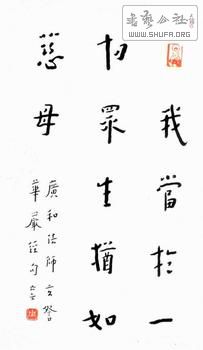 書藝公社
WWW.SHUFA.ORG
我當於一
切眾生猶如
慈母
廣和法師
華嚴經句